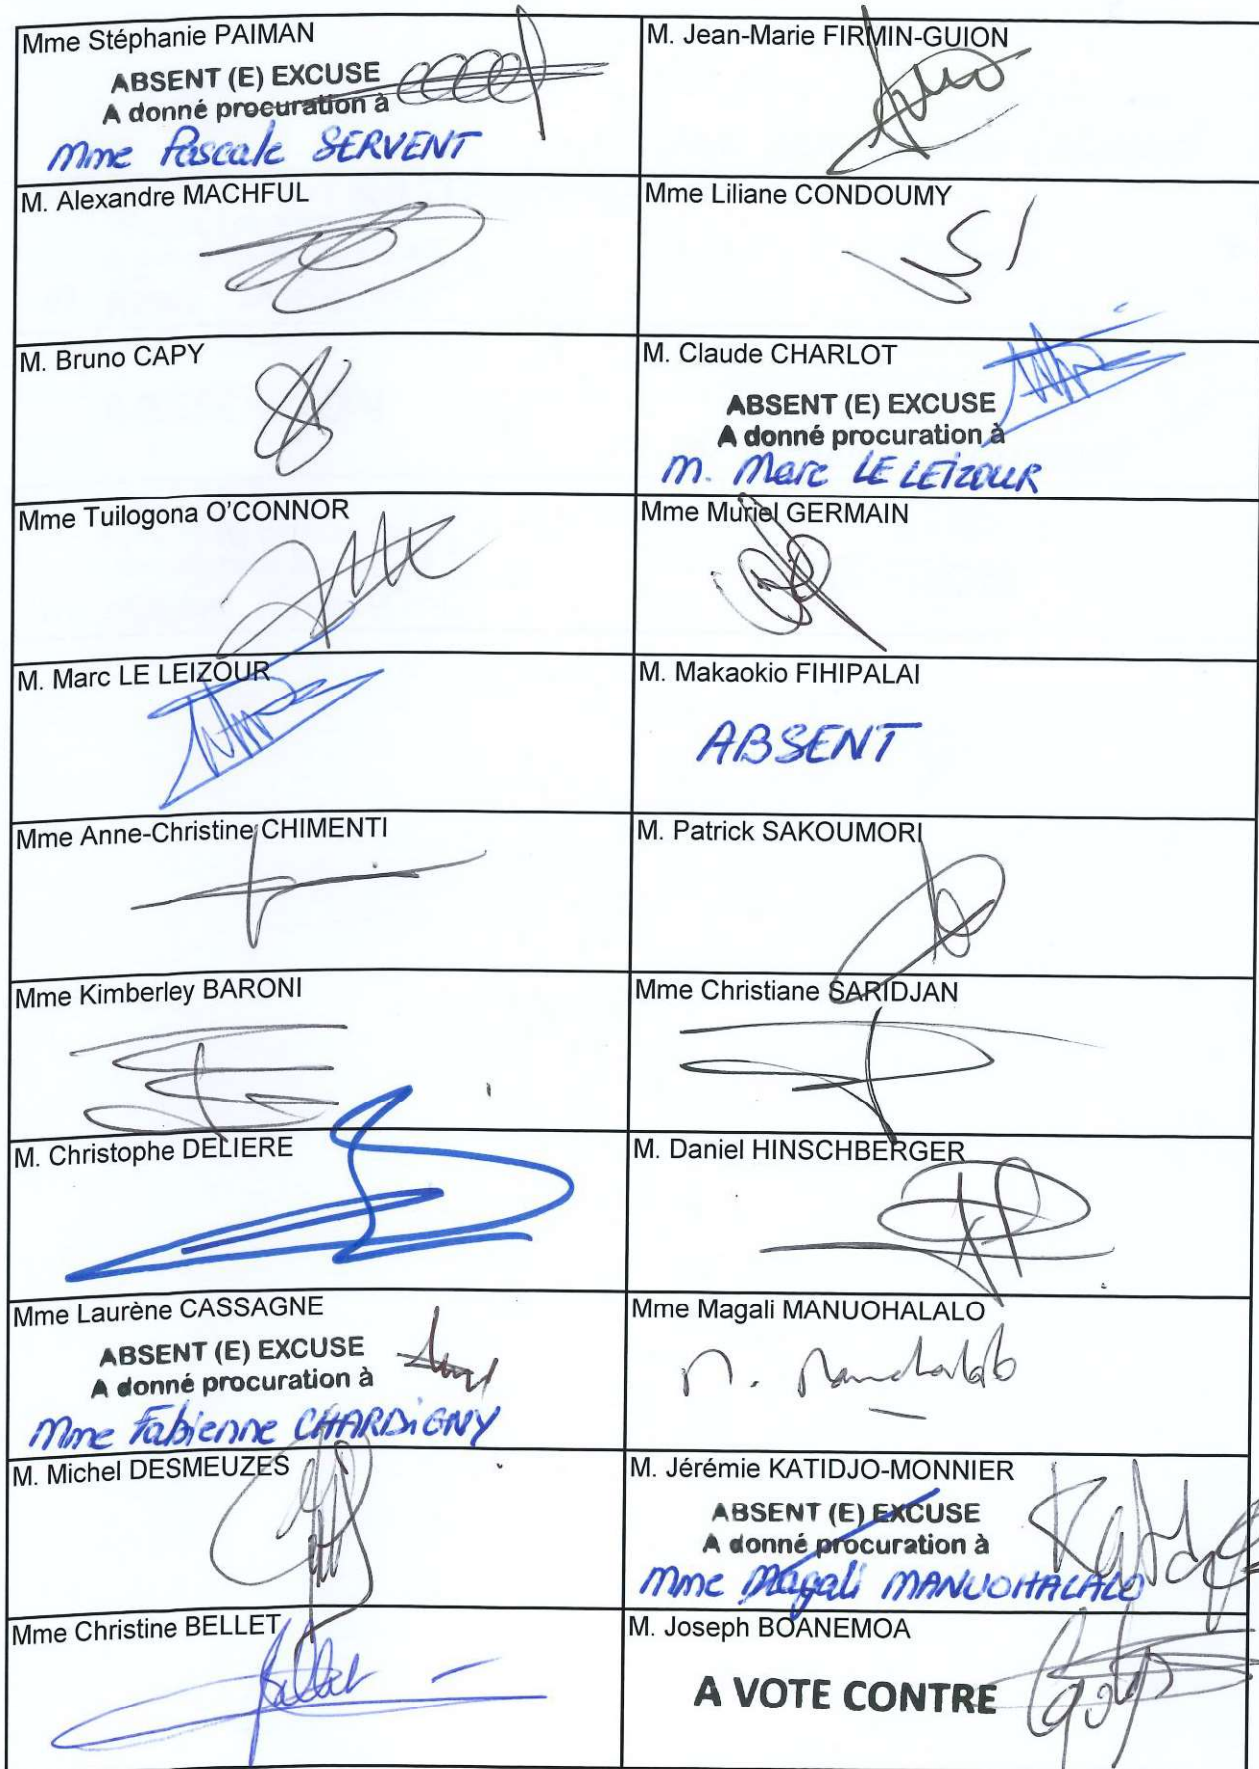 Mme Stéphanie PAIMAN
ABSENT (E) EXCUSE
A donné procuration à
Mme Pascale SERVENT
M. Jean-Marie FIRMIN-GUION
M. Alexandre MACHFUL
Mme Liliane CONDOUMY
M. Bruno CAPY
M. Claude CHARLOT
ABSENT (E) EXCUSE
A donné procuration à
M. Marc LE LEIZOUR
Mme Tuilogona O'CONNOR
Mme Muriel GERMAIN
M. Marc LE LEIZOUR
M. Makaokio FIHIPALAI
ABSENT
Mme Anne-Christine CHIMENTI
M. Patrick SAKOUMORI
Mme Kimberley BARONI
Mme Christiane SARIDJAN
M. Christophe DELIERE
M. Daniel HINSCHBERGER
Mme Laurène CASSAGNE
ABSENT (E) EXCUSE
A donné procuration à
Mme Fabienne CHARDIGNY
Mme Magali MANUOHALALO
M. Michel DESMEUZES
M. Jérémie KATIDJO-MONNIER
ABSENT (E) EXCUSE
A donné procuration à
Mme Magali MANUOHALALO
Mme Christine BELLET
M. Joseph BOANEMOA
A VOTE CONTRE